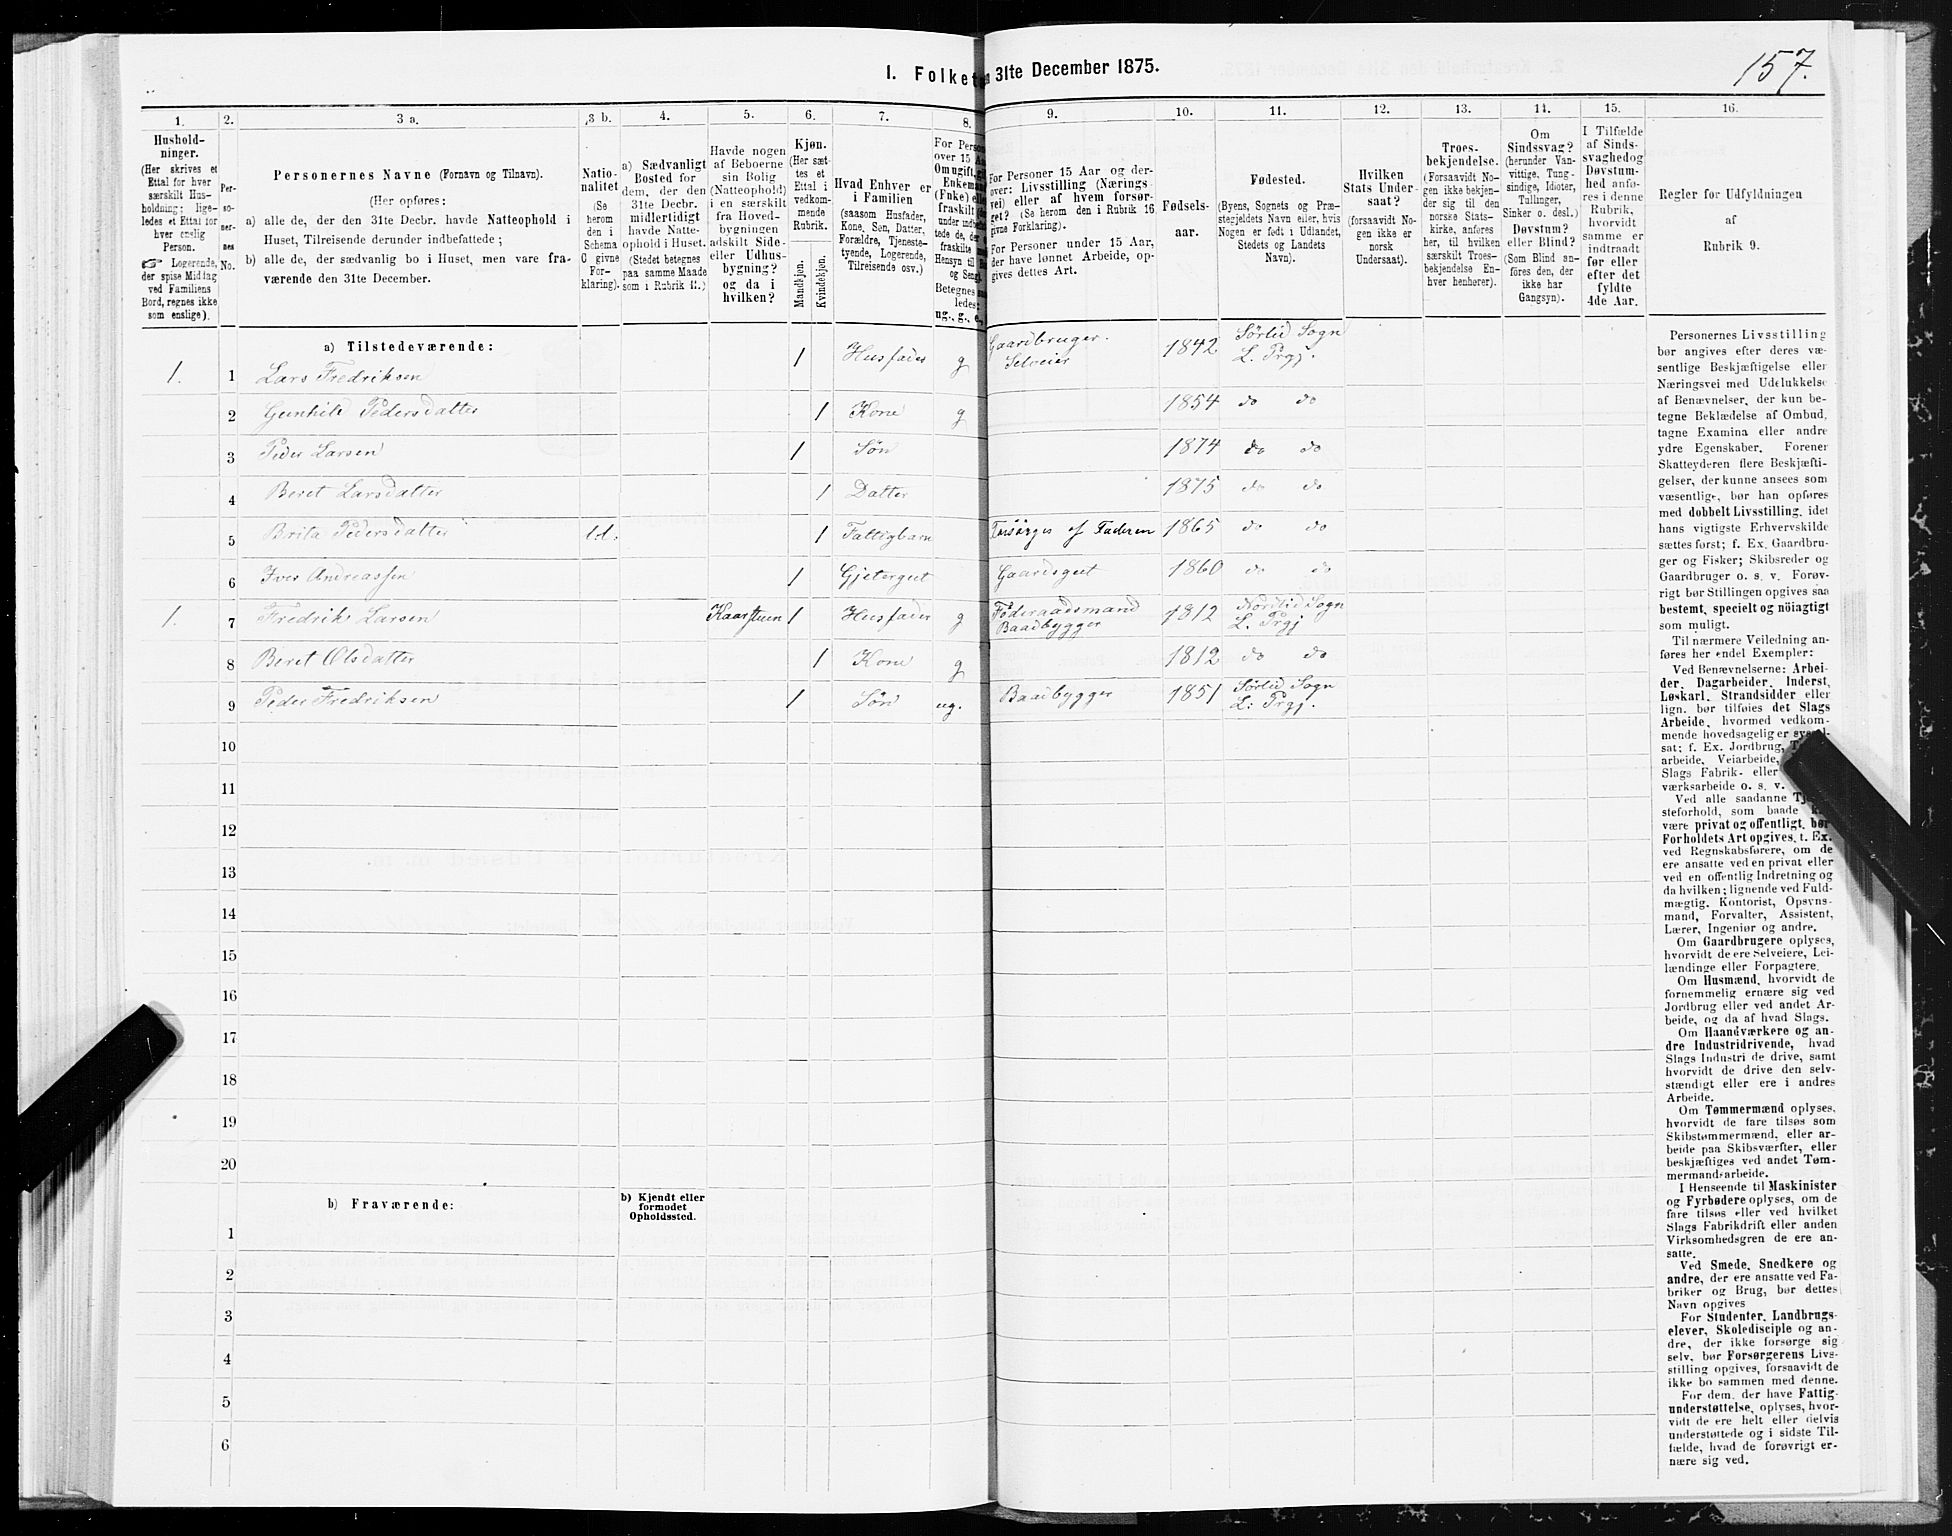 157.
I. Folket
n 31te December 1875.
1.
2.
3 a.
3 b.
4.
5.
6.
7.
8.
9.
10.
11.
12.
13.
14.
15.
16.
Hushold-
ninger.
(Her skrives et
Ettal for hver
særskilt Hus-
holdning; lige-
ledes et Ettal for
hver enslig
Person.
☞ Logerende,
der spise Middag
ved Familiens
Bord, regnes ikke
som enslige).
Per-
so-
ner-
nes
No.
Personernes Navne (Fornavn og Tilnavn).
(Her opføres:
a) alle de, der den 31te Decbr. havde Natteophold i
Huset, Tilreisende derunder indbefattede;
b) alle de, der sædvanlig bo i Huset, men vare fra-
værende den 31te December.
Natio-
nalitet
(Se
herom
den i
Schema
C givne
For-
klaring).
a) Sædvanligt
Bosted for
dem, der den
31te Decbr.
midlertidigt
havde Natte-
ophold i Huset.
(Stedet betegnes
paa samme Maade
som i Rubrik 11.)
Havde nogen
af Beboerne
sin Bolig
(Natteophold)
i en særskilt
fra Hoved-
bygningen
adskilt Side-
eller Udhus-
bygning?
og da i
hvilken?
Kjøn.
(Her sæt-
tes et
Ettal i
vedkom-
mende
Rubrik.
Mandkjøn.
Kvindekjøn.
Hvad Enhver er
i Familien
(saasom Husfader,
Kone, Søn, Datter,
Forældre, Tjeneste-
tyende, Logerende,
Tilreisende osv.)
For Person
over 15 Aa
Om ugift, gi
Enkemand
(Enke) elle
fraskilt
under indbe
tede de, der
fraskilte
Hensyn til B
og Seng
Betegnes
ledes:
ug., g., e.,
For Personer 15 Aar og der-
over: Livsstilling (Nærings-
vei) eller af hvem forsør-
get? (Se herom den i Rubrik 16
givne Forklaring).
For Personer under 15 Aar,
der have lønnet Arbeide, op-
gives dettes Art.
Fødsels-
aar.
Fødested.
(Byens, Sognets og Præ-
stegjeldets Navn eller, hvis
Nogen er født i Udlandet,
Stedets og Landets
Navn).
Hvilken
Stats Under-
saat?
(forsaavidt No-
gen ikke er
norsk
Undersaat).
Troes-
bekjendelse.
(Forsaavidt No-
gen ikke bekjen-
der sig til den
norske Stats-
kirke, anføres
her, til hvilken
særskilt Troes-
bekjendelse En-
hver henhører).
Om
Sindssvag?
(herunder Van-
vittige, Tung-
sindige, Idioter,
Tullinger,
Sinker o. desl.)
Døvstum?
eller Blind?
(Som Blind an-
føres den, der
ikke har
Gangsyn).
I Tilfælde
af Sinds-
svaghedog
Døvstum-
hed anfø-
res i denne
Rubrik,
hvorvidt
samme er
indtraadt
før eller
efter det
fyldte
4de Aar.
Regler for Udfyldningen
af
Rubrik 9.
a) Tilstedeværende:
1. 1 Lars Fredriksen 1 Husfader g Gaardbruger. Selveier 1842 Sørlid Sogn L. Prgj.
2 Gunhild Pedersdatter 1 Kone g 1854 do do
3 Peder Larsen 1 Søn 1874 do do
4 Beret Larsdatter 1 Datter 1875 do do
5 Brita Pedersdatter 1 Fattigbarn Forsørges af Faderen 1865 do do
6 Iver Andreassen 1 Gjetergut Gaardsgut 1860 do do
1. 7 Fredrik Larsen Kaarstuen 1 Husfader g Føderaadsmand Baadbygger 1812 Nordlid Sogn L. Prgj
8 Beret Olsdatter 1 Kone g 1812 do do
9 Peder Fredriksen 1 Søn ug. Baadbygger 1851 Sørlid Sogn L: Prgj.
10
11
12
13
14
15
16
17
18
19
20
b) Fraværende:
b) Kjendt eller
formodet
Opholdssted.
1
2
3
4
5
6
Personernes Livsstilling
bør angives efter deres væ-
sentlige Beskjæftigelse eller
Næringsvei med Udelukkelse
af Benævnelser, der kun be-
tegne Beklædelse af Ombud,
tagne Examina eller andre
ydre Egenskaber. Forener
Skatteyderen flere Beskjæfti-
gelser, der kunne ansees som
væsentlige, bør han opføres
med dobbelt Livsstilling, idet
hans vigtigste Erhvervskilde
sættes først; f. Ex. Gaardbru-
ger og Fisker; Skibsreder og
Gaardbruger o. s. v. Forøv-
rigt bør Stillingen opgives saa
bestemt, specielt og nöiagtigt
som muligt.
Til nærmere Veiledning an-
føres her endel Exempler:
Ved Benævnelserne: Arbei-
der, Dagarbeider, Inderst,
Løskarl, Strandsidder eller
lign. bør tilføies det Slags
Arbeide, hvormed vedkom-
mende hovedsagelig er syssel-
sat; f. Ex. Jordbrug,
arbeide, Veiarbeide,
Slags Fabrik- eller
værksarbeide o. s. v.
Ved alle saadanne Tj
steforhold, som baade k
være privat og offentligt, bør
Forholdets Art opgives, t. Ex.
ved Regnskabsførere, om de
ere ansatte ved en privat eller
ved en offentlig Indretning og
da hvilken; lignende ved Fuld-
mægtig. Kontorist, Opsyns-
mand, Forvalter, Assistent,
Lærer, Ingeniør og andre.
Om Gaardbrugere oplyses,
hvorvidt de ere Selveiere, Lei-
lændinge eller Forpagtere.
Om Husmænd, hvorvidt de
fornemmelig ernære sig ved
Jordbrug eller ved andet Ar-
beide, og da af hvad Slags.
Om Haandværkere og an-
dre Industridrivende, hvad
Slags Industri de drive, samt
hvorvidt de drive den selv-
stændigt eller ere i andres
Arbeide.
Om Tømmermænd oplyses,
hvorvidt de fare tilsøs som
Skibstømmermænd, eller ar-
beide paa Skibsværfter, eller
beskjæftiges ved andet Tøm-
mermandsarbeide.
I Henseende til Maskinister
og Fyrbødere oplyses, om de
fare tilsøs eller ved hvilket
Slags Fabrikdrift eller anden
Virksomhedsgren de ere an-
satte.
Ved Smede, Snedkere og
andre, der ere ansatte ved Fa-
briker og Brug, bør dettes
Navn opgives
For Studenter, Landbrugs-
elever, Skoledisciple og an-
dre, der ikke forsørge sig
selv, bør Forsørgerens Livs-
stilling opgives, forsaavidt de
ikke bo sammen med denne.
For dem, der have Fattig-
understøttelse, oplyses, hvor-
vidt de ere helt eller delvis
understøttede og i sidste Til-
fælde, hvad de forøvrigt er-
nære sig ved.